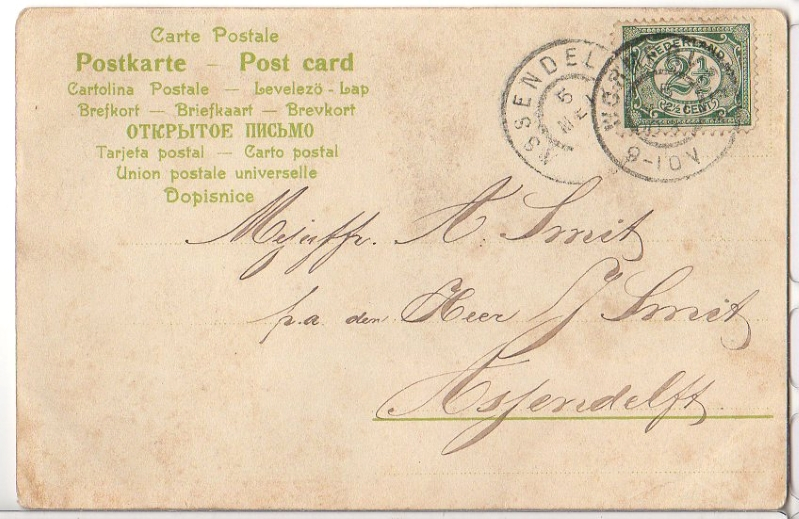 Carte Postale
Postkarte — Post card
Cartolina Postale — Levelezö-Lap
Brefkort — Briefkaart — Brevkort
ОТКРЫТОЕ ПИСЬМО
Tarjeta postal — Carto postal
Union postale universelle
Dopisnice
NEDERLAND
2½
2½ CENT
SSENDEL
5
8-10V
Mejuffr. A. Smit
p.a. den Heer J Smit
Assendelft